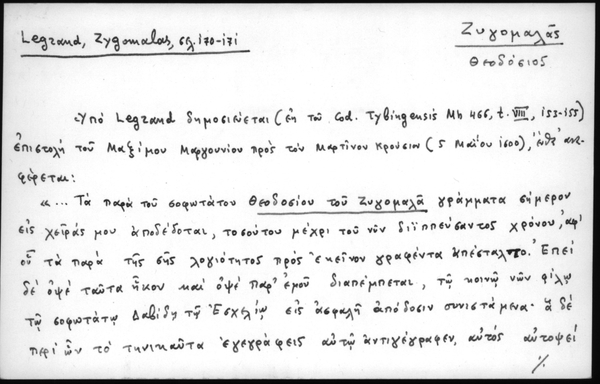 Legrand, Zygomalas, σελ. 170-171
Ζυγομαλᾶς
Θεοδόσιος
Ὑπό Legrand δημοσιεύεται (ἐκ τοῦ Cod. Tybingensis Mh 466, t. VIII, 153-155)
ἐπιστολή τοῦ Μαξίμου Μαργουνίου πρός τόν Μαρτῖνον Κρούσιν (5 Μαΐου 1600), ἔνθ' ἀνα-
φέρεται:
«... Τὰ παρά τοῦ σοφωτάτου Θεοδοσίου τοῦ Ζυγομαλᾶ γράμματα σήμερον
εἰς χεῖράς μου ἀποδέδοται, τοσούτου μέχρι τοῦ νῦν διϊππεύσαντος χρόνου, ἀφ'
οὗ τὰ παρά τῆς σῆς λογιότητος πρός ἐκεῖνον γραφέντα ἀπέσταλτο. Ἐπεί
δέ ὀψέ ταῦτα ἧκον καί ὀψέ παρ' ἐμοῦ διαπέμπεται, τῷ κοινῷ νῶν φίλῳ
τῷ σοφωτάτῳ Δαβίδῃ τῷ Ἐσχελίῳ εἰς ἀσφαλῆ ἀπόδοσιν συνιστάμενα· ἅ δέ
περί ὧν τό τηνικαῦτα ἐγεγράφεις αὐτῷ ἀντιγέγραφεν, αὐτός αὐτοψεί
./.